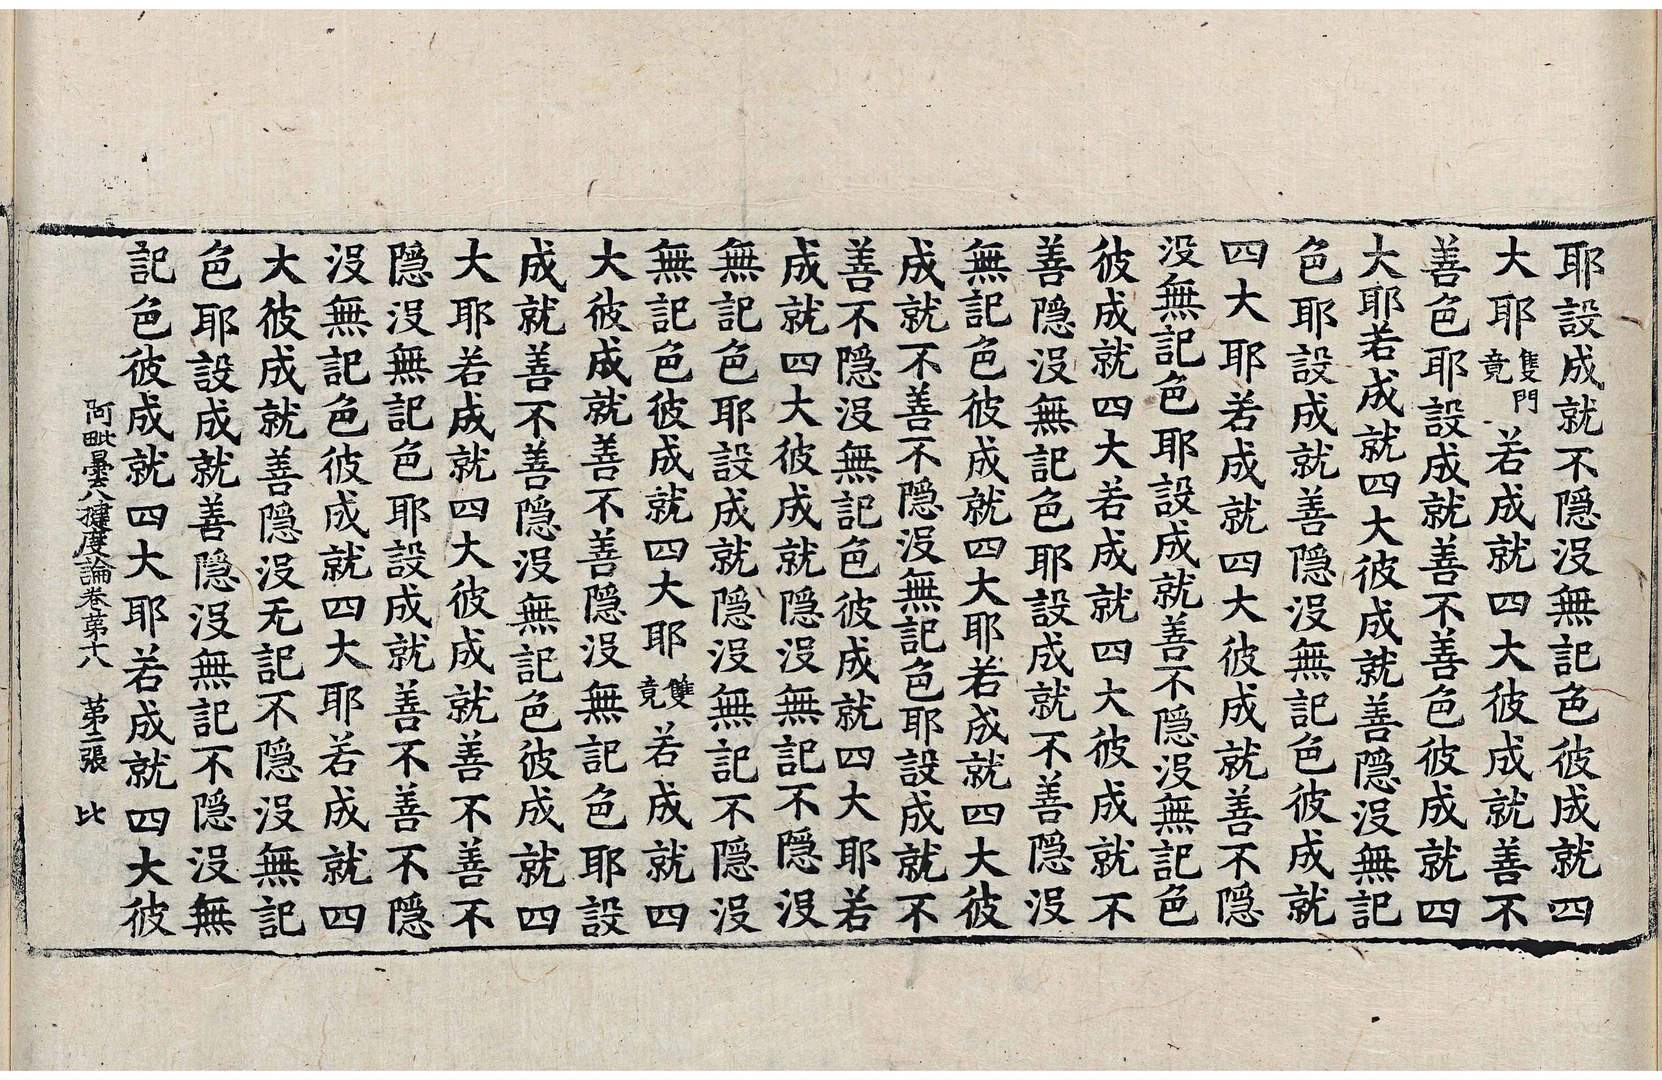 耶設成就不隠沒無記色彼成就四
大耶雙門竟若成就四大彼成就善不
善色耶設成就善不善色彼成就四
大耶若成就四大彼成就善隠沒無記
色耶設成就善隠沒無記色彼成就
四大耶若成就四大彼成就善不隠
沒無記色耶設成就善不隠沒無記色
彼成就四大若成就四大彼成就不
善隠沒無記色耶設成就不善隠沒
無記色彼成就四大耶若成就四大彼
成就不善不隠沒無記色耶設成就不
善不隠沒無記色彼成就四大耶若
成就四大彼成就隠沒無記不隠沒
無記色耶設成就隠沒無記不隠沒
無記色彼成就四大耶雙竟若成就四
大彼成就善不善隠沒無記色耶設
成就善不善隠沒無記色彼成就四
大耶若成就四大彼成就善不善不
隠沒無記色耶設成就善不善不隠
沒無記色彼成就四大耶若成就四
大彼成就善隠沒无記不隠沒無記
色耶設成就善隠沒無記不隠沒無
記色彼成就四大耶若成就四大彼
阿毗曇八揵度論卷第十八 第二張 比